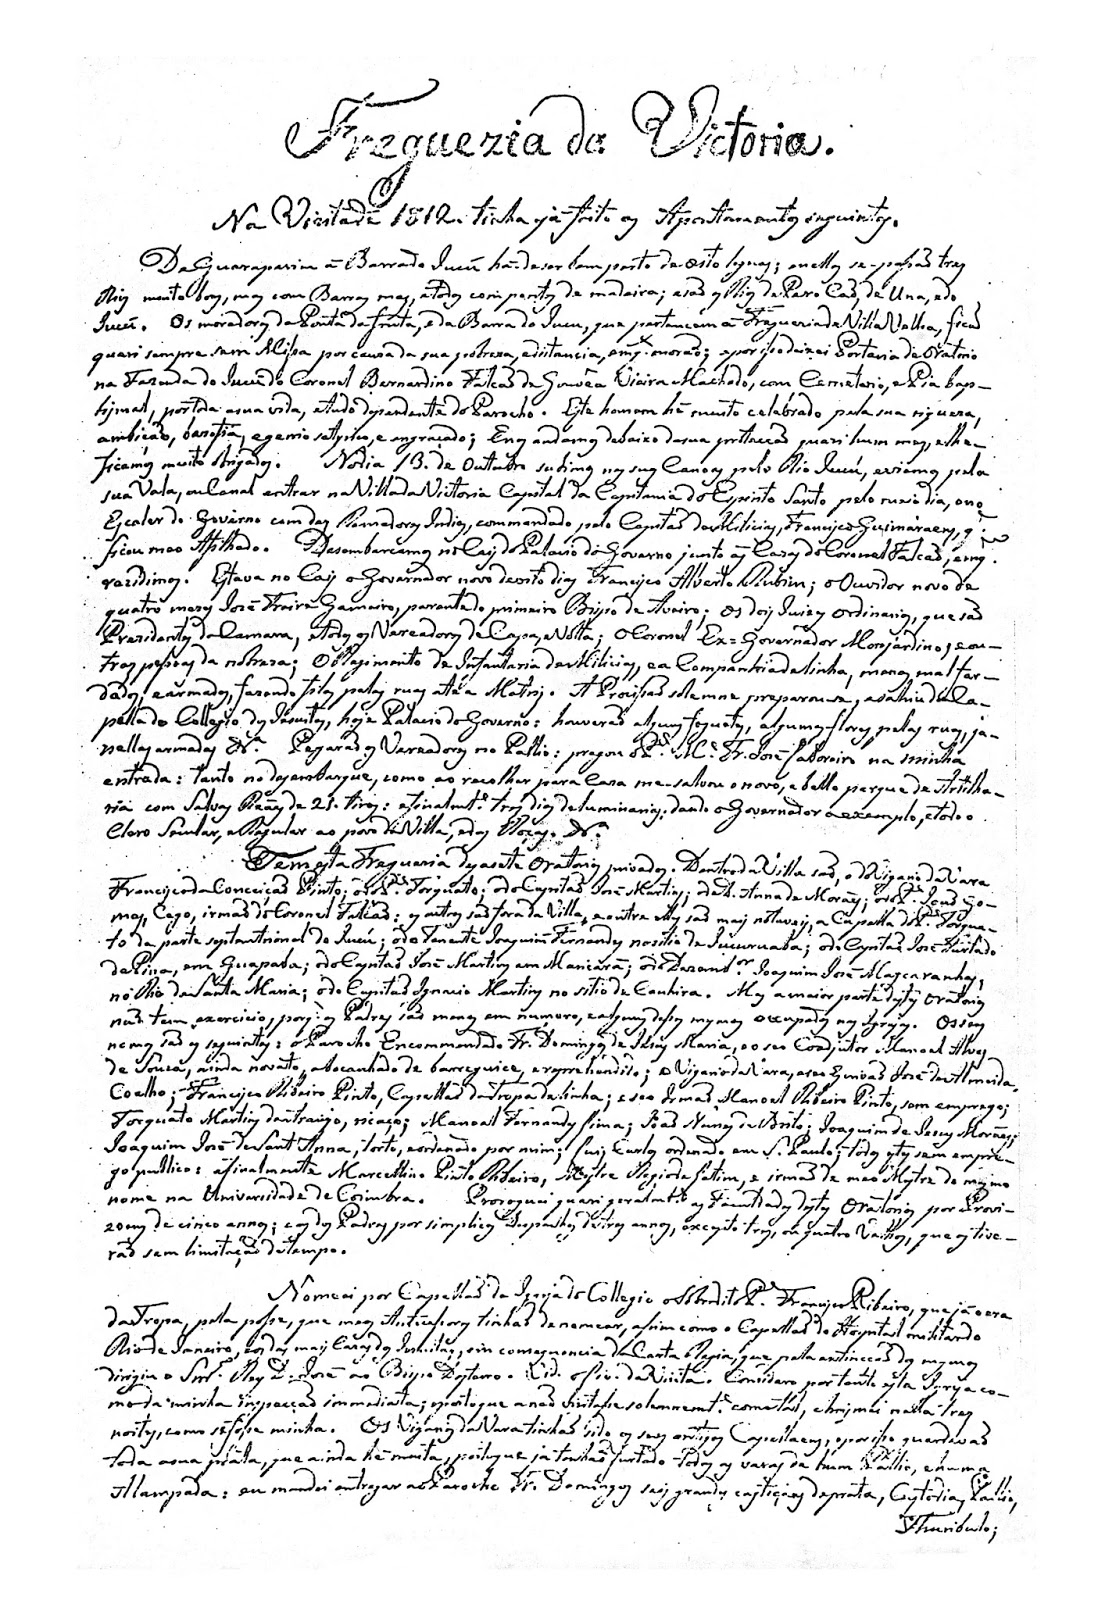 Freguezia da Victoria.
Na Vizita de 1812. tinha eu já feito os Apontamentos seguintes.
De Guaraparim á Barra do Jucú há de ser bem perto de oito legoas; e nellas se passaõ tres
Rios muito bons, mas com Barras más, e todos com pontes de madeira; e saõ os Rios de Pero Caõ, de Una, e do
Jucú. Os moradores da Ponta da fruta, e da Barra do Jucu, que pertencem á Freguezia da Villa Velha, ficaõ
quasi sempre sem Missa por causa da sua pobreza, e distancia, em q. moraõ; e por isso deixei Portaria de Oratorio
na Fazenda do Jucú do Coronel Bernardino Falcaõ de Gouvêa Vieira Machado, com Cemeterio, e Pia bap-
tismal, por toda a sua vida, e tudo dependente do Parocho. Este homem hé muito celebrado pela sua riqueza,
ambiçaõ, bazofia, e genio satyrico, e engraçado; Eu andamos debaixo da sua protecçaõ quasi hum mez, e lhe
ficamos muito obrigados. No dia 13. de Outubro subimos nas suas Canoas pelo Rio Jucú, e viemos pela
sua Vala, ou Canal entrar na Villa da Victoria Capital da Capitania do Espirito Santo pelo meio dia, e no
Escaler do Governo com dez Remadores Indios, commandado pelo Capitaõ de Milicias, Francisco Guimaraens, q.
ficou meo Afilhado. Desembarcamos no Caes do Palacio do Governo junto ás Casas do Coronel Falcaõ, em q.
rezidimos. Estava no Caes o Governador novo de oito dias Francisco Alberto Rubim; o Ouvidor novo de
quatro mezes José Freire Gameiro, parente do primeiro Bispo de Aveiro; os dois Juizes ordinarios, que saõ
Prezidentes da Camara, e todos os Vereadores de Capa, e Volta; o Coronel Ex=Governador Monjardino; e ou-
tras pessoas da nobreza; O Regimento de Infantaria de Milicias, e a Companhia de linha, menos mal far-
dados, e armados, fazendo filas pelas ruas até a Matriz. A Procissaõ solemne preparou-se, e sahiu da Ca-
pella do Collegio dos Jesuitas, hoje Palacio do Governo: houveraõ alguns foguetes, algumas flores pelas ruas, ja-
nellas armadas &ª. Pegaraõ os Vereadores no Pallio: pregou o P.e M.e Fr. José na minha
entrada: tanto no desembarque, como ao recolher para Caza me salvou o novo, e bello parque de Artilha-
ria com Salvas Reaes de 21. tiros: e finalmt.e tres dias de luminarias, dando o Governador o exemplo, e todo o
Clero Secular, e Regular ao povo da Villa, e das Roças. &ª
Tem esta Freguezia dezasete Oratorios privados. Dentro da Villa saõ, o do Vigario da Vara
Francisco da Conceiçaõ Pinto; o do P.e Torquato; o do Capitaõ José Martins; o de D. Anna de Moraes; o do P.e
Cego, irmaõ do Coronel Falcaõ: os outros saõ fora da Villa, e entre elles saõ mais notaveis, a Capella do P.e Torqua-
to da parte septentrional do Jucú; o do Tenente Joaquim Fernandes no sitio de Jucuruaba; o do Capitaõ José Furtado
de , em Guapaba; o do Capitaõ José Martins em Maricará; o do Dezemb.or Joaquim José Mascaranhas,
no Rio de Santa Maria; o do Capitaõ Ignacio Martins no sitio de Cauhira. Mas a maior parte destes Oratorios
naõ tem exercicio, porq. os Padres saõ menos em numero, e alguns destes mesmos occupados nas Igrejas. Os seos
nomes saõ os seguintes: o Parocho Encommendado Fr. Domingos de Jesus Maria, e o seo Coadjutor Manoel Alves
de Souza, ainda novato, abocanhado de barreguice, e reprehendido; o Vigario da Vara, e seo Escrivaõ José de Almeida
Coelho; Francisco Ribeiro Pinto, Capellaõ da tropa de linha; e seo Irmaõ Manoel Ribeiro Pinto, sem emprego;
Torquato Martins de Araujo, ricaço; Manoel Fernandes Lima; Joaõ Nunes de Brito; Joaquim de Jesus Moraes;
Joaquim José de Sant'Anna, torto, e ordenado por mim; Luis Carlos ordenado em S. Paulo; todos estes sem empre-
go publico: e finalmente Marcellino Pinto Ribeiro, Mestre Regio de Latim, e irmaõ de meo Mestre do mesmo
nome na Universidade de Coimbra. Proroguei quasi geralmt.e as Faculdades destes Oratorios por Provi-
zoens de cinco annos; e as dos Padres por simplices Despachos de tres annos, excepto tres, ou quatro Velhos, que as tive-
raõ sem limitaçaõ de tempo.
Nomeei por Capellaõ da Igreja do Collegio o Sobredito P.e Francisco Ribeiro, que já o era
da Tropa, pela posse, que meos Antecessores tinhaõ de nomear, assim como o Capellaõ do Hospital militar do
Rio de Janeiro, e os das mais Cazas dos Jesuitas, em consequencia da Carta Regia, que pela extincçaõ dos mesmos
dirigiu o Snr. Rey D. José ao Bispo Desterro. Vid. o liv. da Vizita. Considero por tanto esta Igreja co-
mo da minha inspecçaõ immediata; e posto que a naõ vizitasse solemnemt.e com tudo, chrismei nella tres
noites, como se fosse minha. Os Vigarios da Vara tinhaõ sido os seos antigos Capellaens, e por isso guardavaõ
toda a sua prata, que ainda hé muita, posto que já tenhaõ furtado todas as varas de hum Pallio, e huma
Alampada: eu mandei entregar ao Parocho Fr. Domingos seis grandes castiçaes de prata, Custodia, Pallio,
Thuribulo;